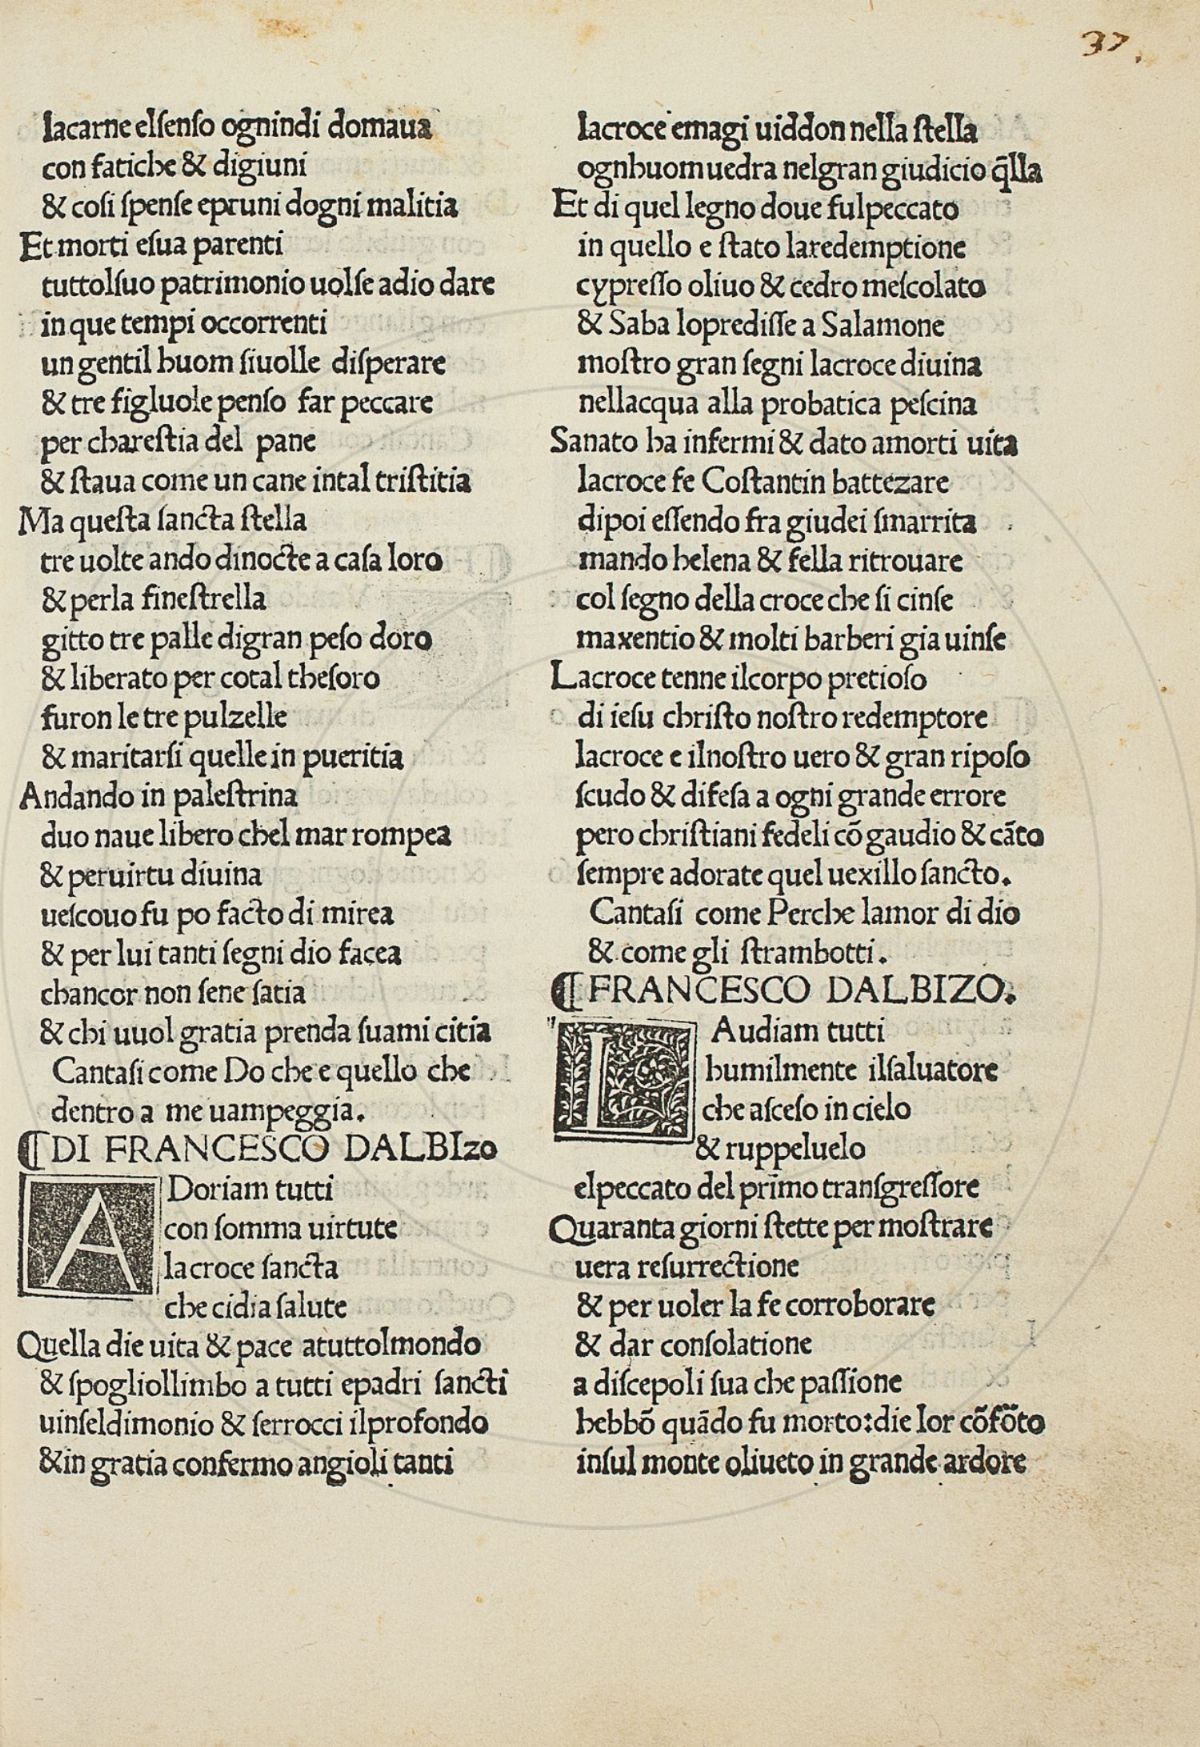 37.
lacarne elſenſo ognindi domaua
con fatiche & digiuni
& coſi ſpenſe epruni dogni malitia
Et morti eſua parenti
tuttolſuo patrimonio uolſe adio dare
in que tempi occorrenti
un gentil huom ſiuolle diſperare
& tre figluole penſo far peccare
per chareſtia del pane
& ſtaua come un cane intal triſtitia
Ma queſta ſancta ſtella
tre uolte ando dinocte a caſa loro
& perla fineſtrella
gitto tre palle digran peſo doro
& liberato per cotal theſoro
furon le tre pulzelle
& maritarſi quelle in pueritia
Andando in paleſtrina
duo naue libero chel mar rompea
& peruirtu diuina
ueſcouo fu po facto di mirea
& per lui tanti ſegni dio facea
chancor non ſene ſatia
& chi uuol gratia prenda ſuami citia
Cantaſi come Do che e quello che
dentro a me uampeggia.
¶DI FRANCESCO DALBIzo
ADoriam tutti
con ſomma uirtute
la croce ſancta
che cidia ſalute
Quella die uita & pace atuttolmondo
& ſpogliollimbo a tutti epadri ſancti
uinſeldimonio & ſerrocci ilprofondo
&in gratia confermo angioli tanti
lacroce emagi uiddon nella ſtella
ognhuom uedra nelgran giudicio q̄lla
Et di quel legno doue fulpeccato
in quello e ſtato laredemptione
cypreſſo oliuo & cedro meſcolato
& Saba loprediſſe a Salamone
moſtro gran ſegni lacroce diuina
nellacqua alla probatica peſcina
Sanato ha infermi & dato amorti uita
lacroce fe Coſtantin battezare
dipoi eſſendo fra giudei ſmarrita
mando helena & fella ritrouare
col ſegno della croce che ſi cinſe
maxentio & molti barberi gia uinſe
Lacroce tenne ilcorpo pretioſo
di ieſu chriſto noſtro redemptore
lacroce e ilnoſtro uero & gran ripoſo
ſcudo & difeſa a ogni grande errore
pero chriſtiani fedeli cō gaudio & cāto
ſempre adorate quel uexillo ſancto.
Cantaſi come Perche lamor di dio
& come gli ſtrambotti.
¶FRANCESCO DALBIZO.
LAudiam tutti
humilmente ilſaluatore
che aſceſo in cielo
& ruppeluelo
elpeccato del primo tranſgreſſore
Quaranta giorni ſtette per moſtrare
uera reſurrectione
& per uoler la fe corroborare
& dar conſolatione
a diſcepoli ſua che paſſione
hebbō quādo fu morto:die lor cōfōto
inſul monte oliueto in grande ardore